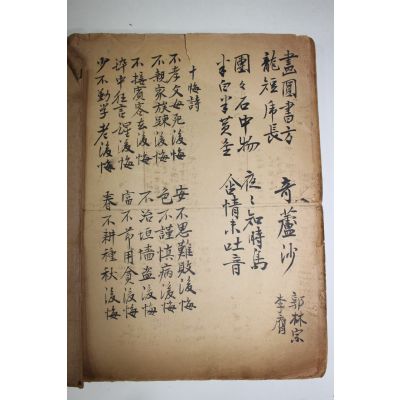 畫圓書方
龍短虎長
奇蘆沙
郭林宗
李膺
團々石中物
夜々知時鳥
半白半黃金
含情未吐音
十悔詩
不孝父母死後悔
安不思難敗後悔
不親家族踈後悔
色不謹愼病後悔
不接賓客去後悔
不治垣墻盜後悔
醉中狂言醒後悔
富不節用貧後悔
少不勤學老後悔
春不耕種秋後悔